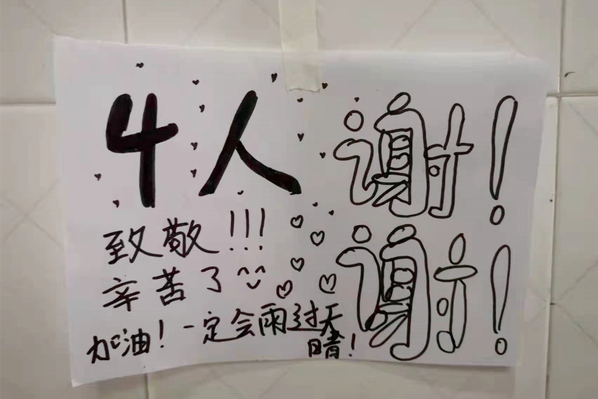 4人 谢!
致敬!!! 谢!
辛苦了
加油!一定会雨过天
晴!